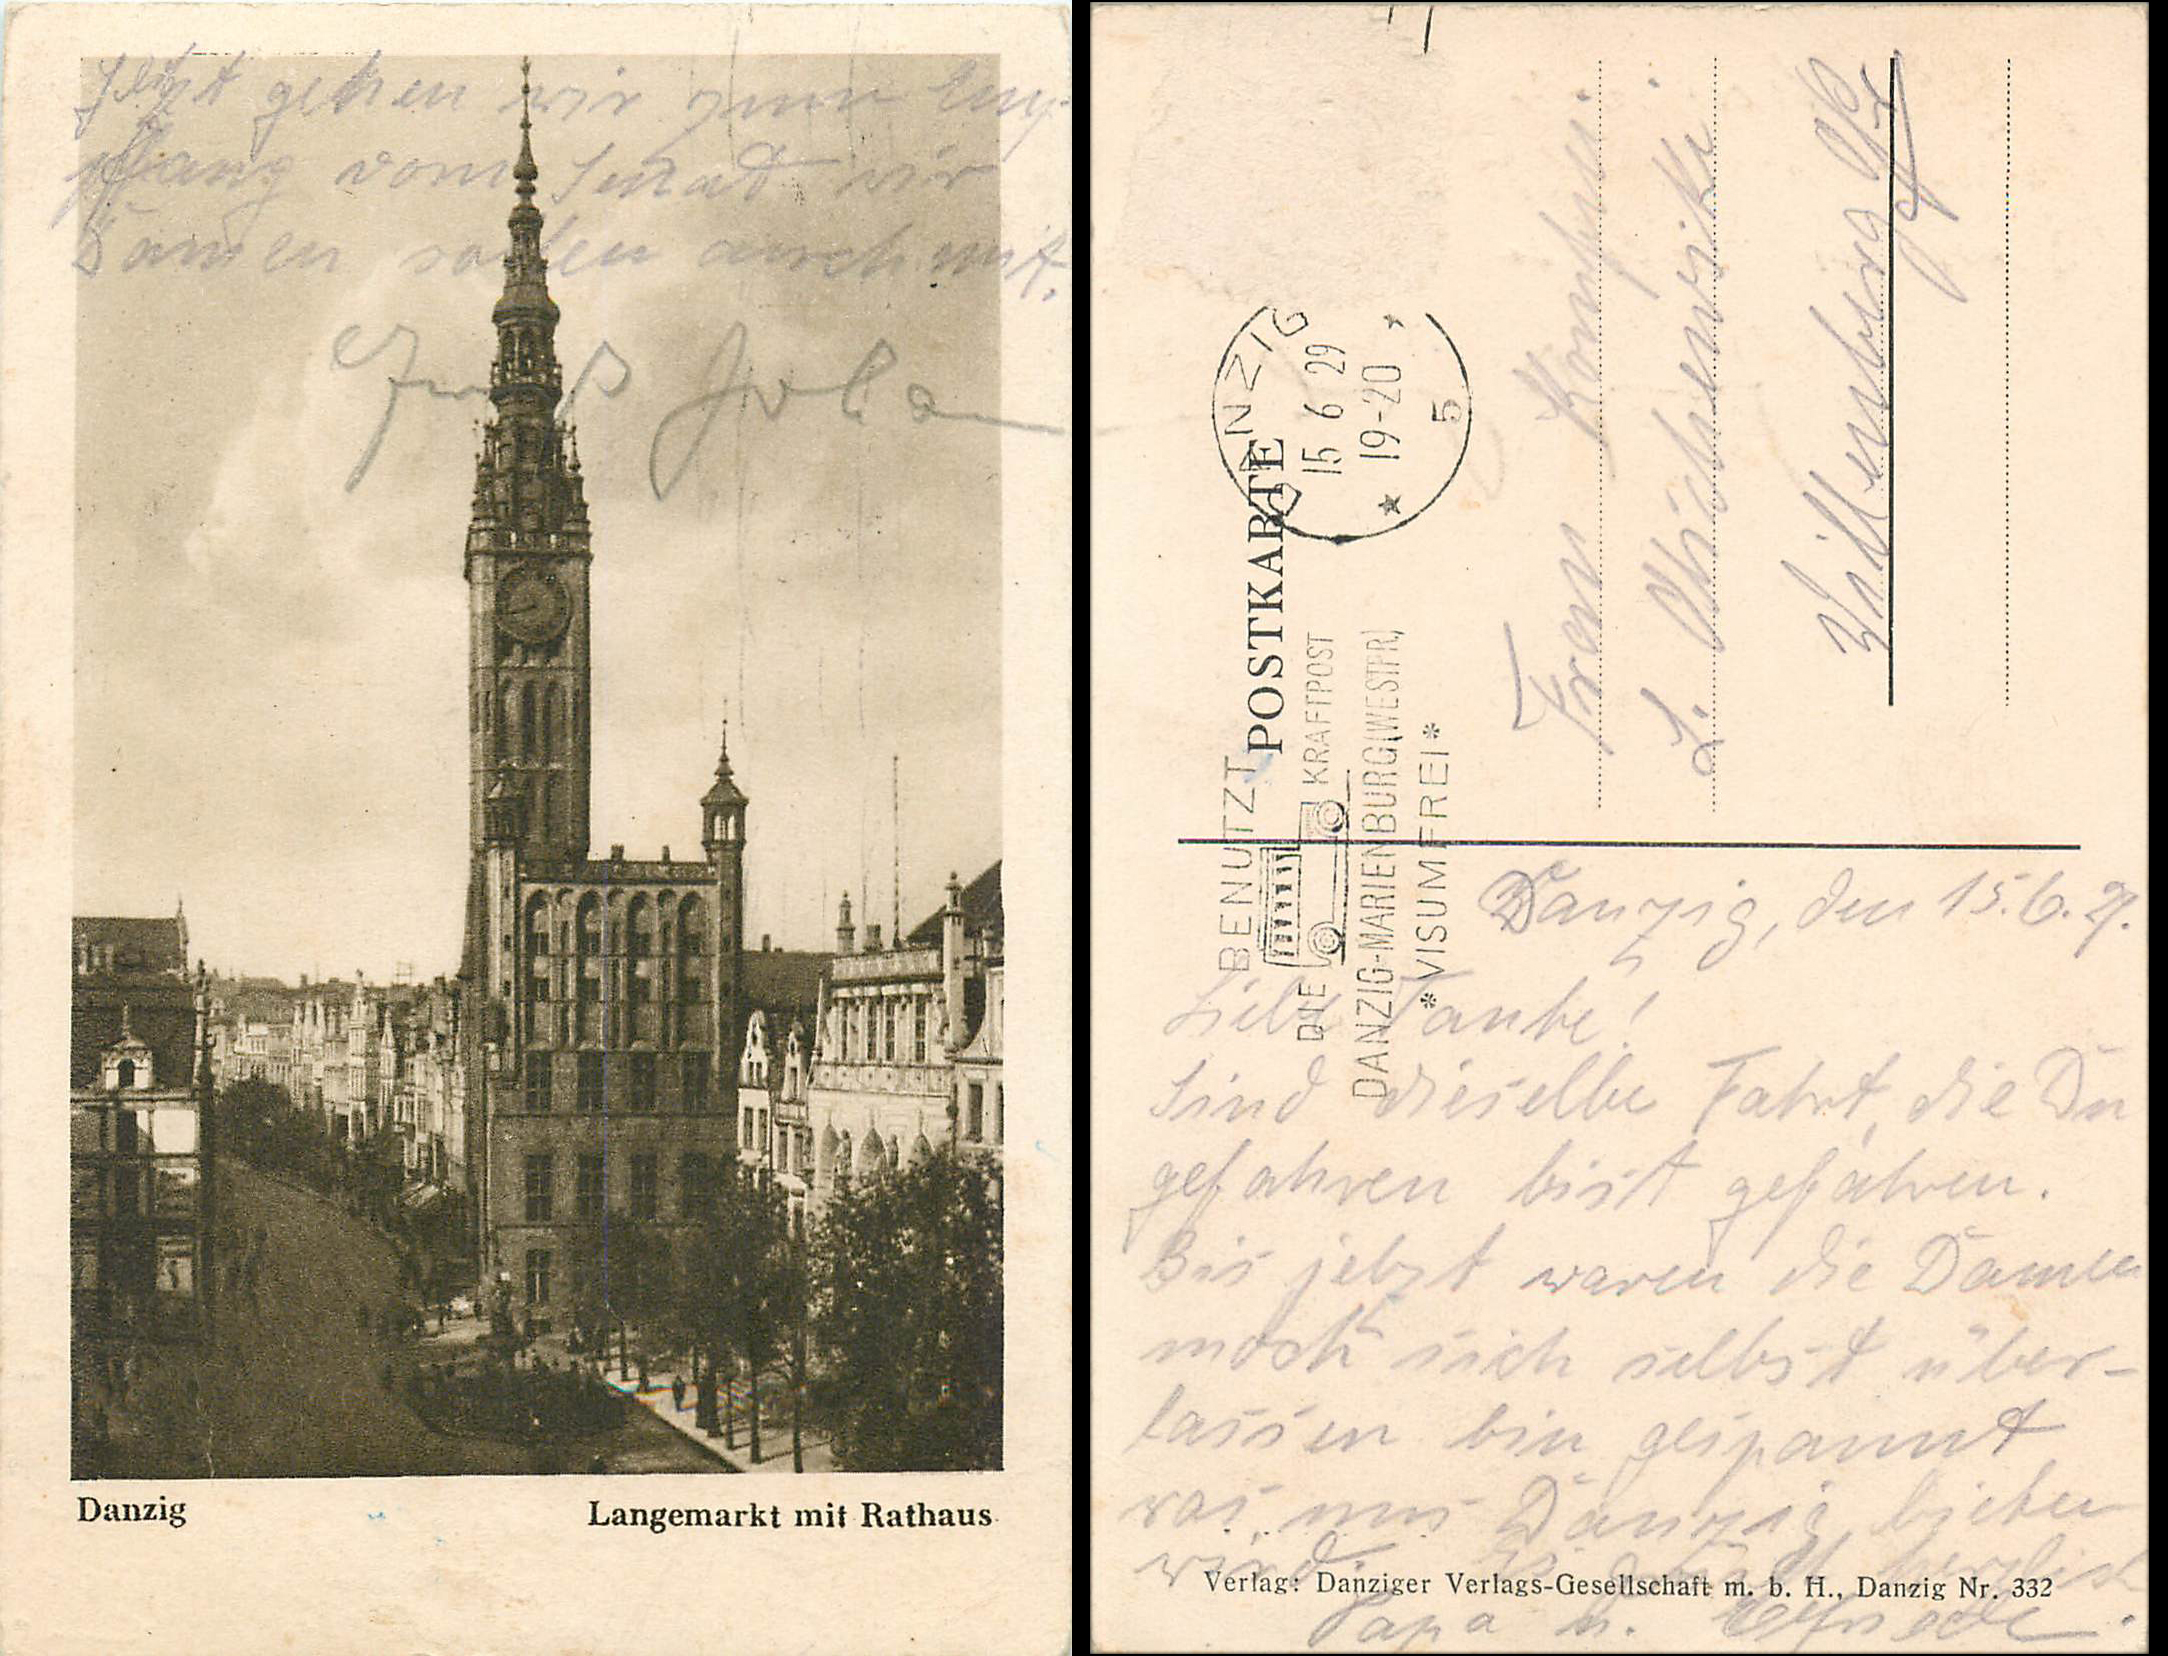 Jetzt gehen wir zum Emp-
pfang vom Senat wir
Damen sollen auch mit.
Gruß
Danzig
Langemarkt mit Rathaus
DANZIG
15 6 29
19-20
* *
5
POSTKARTE
BENUTZT
DIE KRAFTPOST
DANZIG-MARIENBURG (WESTPR)
* VISUMFREI *
Frau
L.
Willenberg Opr
Danzig, den 15.6.29.
Liebe Tante!
Sind dieselbe Fahrt, die Du
gefahren bist gefahren.
Bis jetzt waren die Damen
noch sich selbst über-
lassen bin gespannt
was uns Danzig bieten
wird. herzlich
Papa u. Elfriede.
Verlag: Danziger Verlags-Gesellschaft m. b. H., Danzig Nr. 332